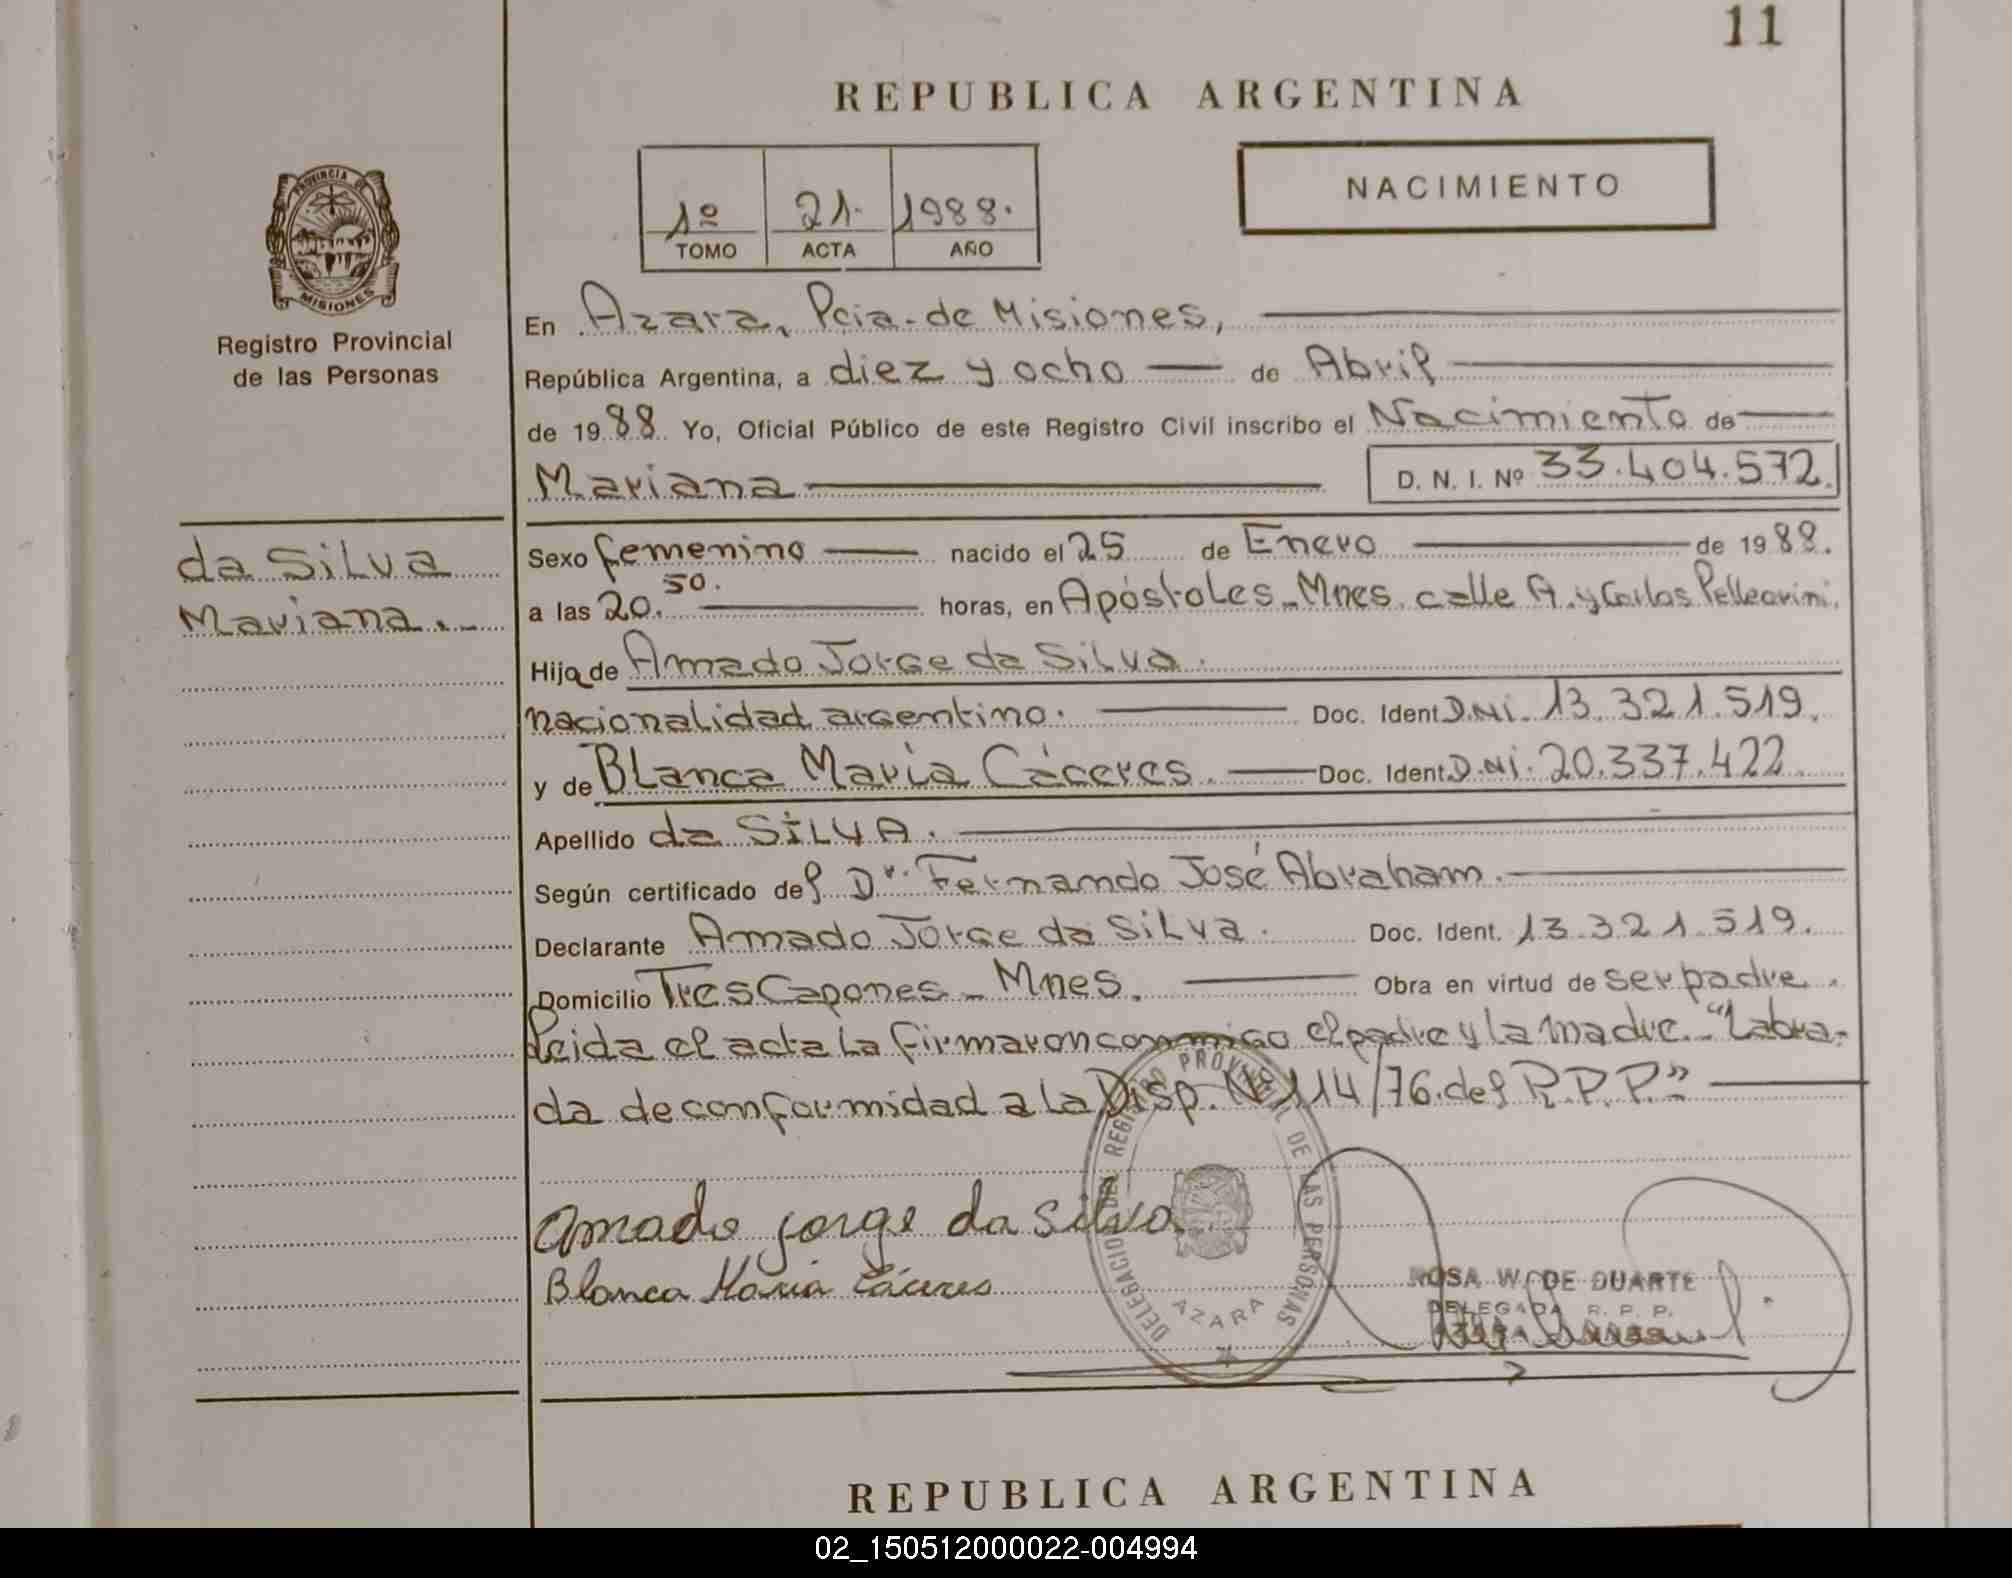 11
REPUBLICA ARGENTINA
1º 21. 1988.
TOMO ACTA AÑO
NACIMIENTO
PROVINCIA DE
MISIONES
Registro Provincial
de las Personas
En Azara, Pcia. de Misiones,
República Argentina, a diez y ocho de Abril
de 1988 Yo, Oficial Público de este Registro Civil inscribo el Nacimiento de
Mariana D. N. I. Nº 33.404.572.
da Silva
Mariana.-
Sexo femenino nacido el 25 de Enero de 1988.
a las 20.50. horas, en Apóstoles - Mnes. calle A. y Carlos Pellegrini.
Hija de Amado Jorge da Silva.
nacionalidad argentino. Doc. Ident D.Ni. 13.321.519.
y de Blanca María Cáceres. Doc. Ident. D.Ni. 20.337.422.
Apellido da SILVA.
Según certificado del Dr. Fernando José Abraham.
Declarante Amado Jorge da Silva. Doc. Ident. 13.321.519.
Domicilio Tres Capones - Mnes. Obra en virtud de ser padre.
Leida el acta la firmaron conmigo el padre y la madre.- "Labra-
da de conformidad a la Disp. Nº 114/76 del R.P.P."
Amado Jorge da Silva
Blanca María Cáceres
DELEGACION DEL REGISTRO PROVINCIAL DE LAS PERSONAS
AZARA
ROSA W. DE DUARTE
DELEGADA R. P. P.
REPUBLICA ARGENTINA
02_150512000022-004994